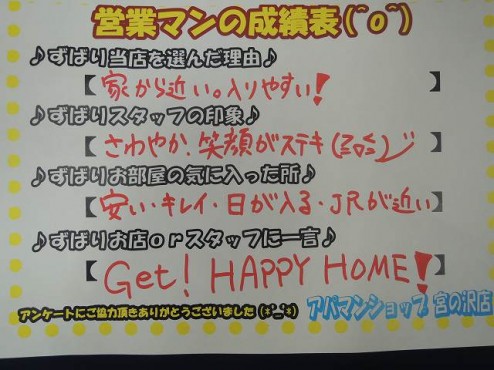 営業マンの成績表(^o^)
♪ずばり当店を選んだ理由♪
【家から近い。入りやすい!】
♪ずばりスタッフの印象♪
【さわやか.笑顔がステキ(≧▽≦)ジ】
♪ずばりお部屋の気に入った所♪
【安い・キレイ・日が入る・JRが近い】
♪ずばりお店orスタッフに一言♪
【Get! HAPPY HOME!】
アンケートにご協力頂きありがとうございました(*^_^*)
アパマンショップ 宮の沢店